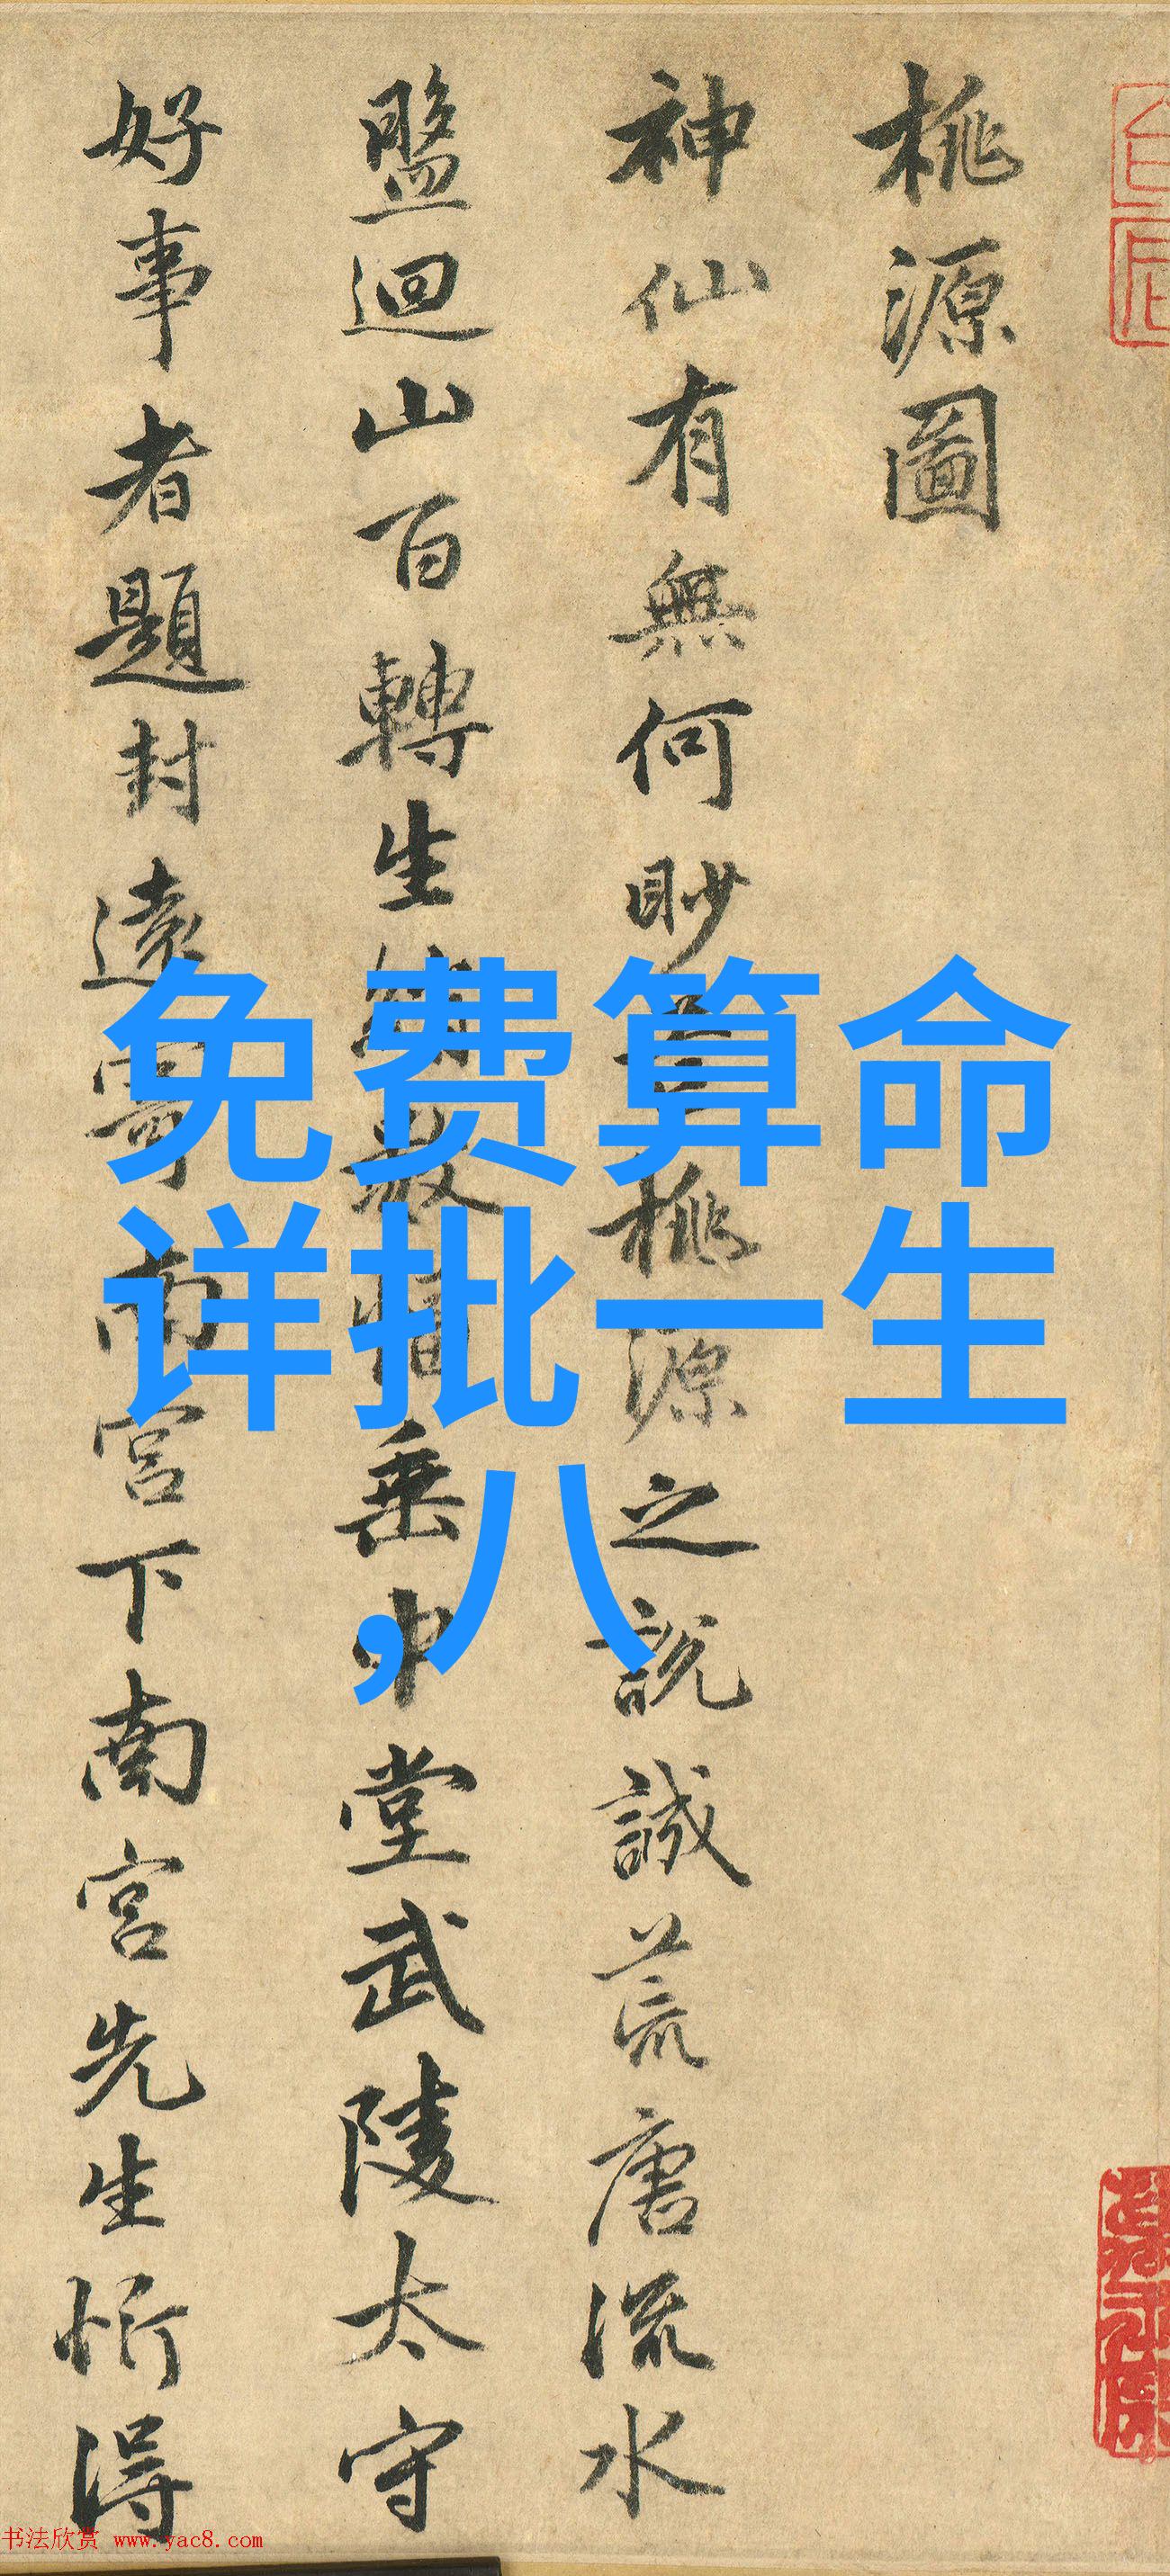 桃源圖
神仙有無何眇芒桃源之説誠荒唐流水
盤迴山百轉生綃數幅垂中堂武陵太守
好事者題封遠寄南宮下南宮先生忻得
免费算命
详批一生
,八
书法欣赏 www.yac8.com